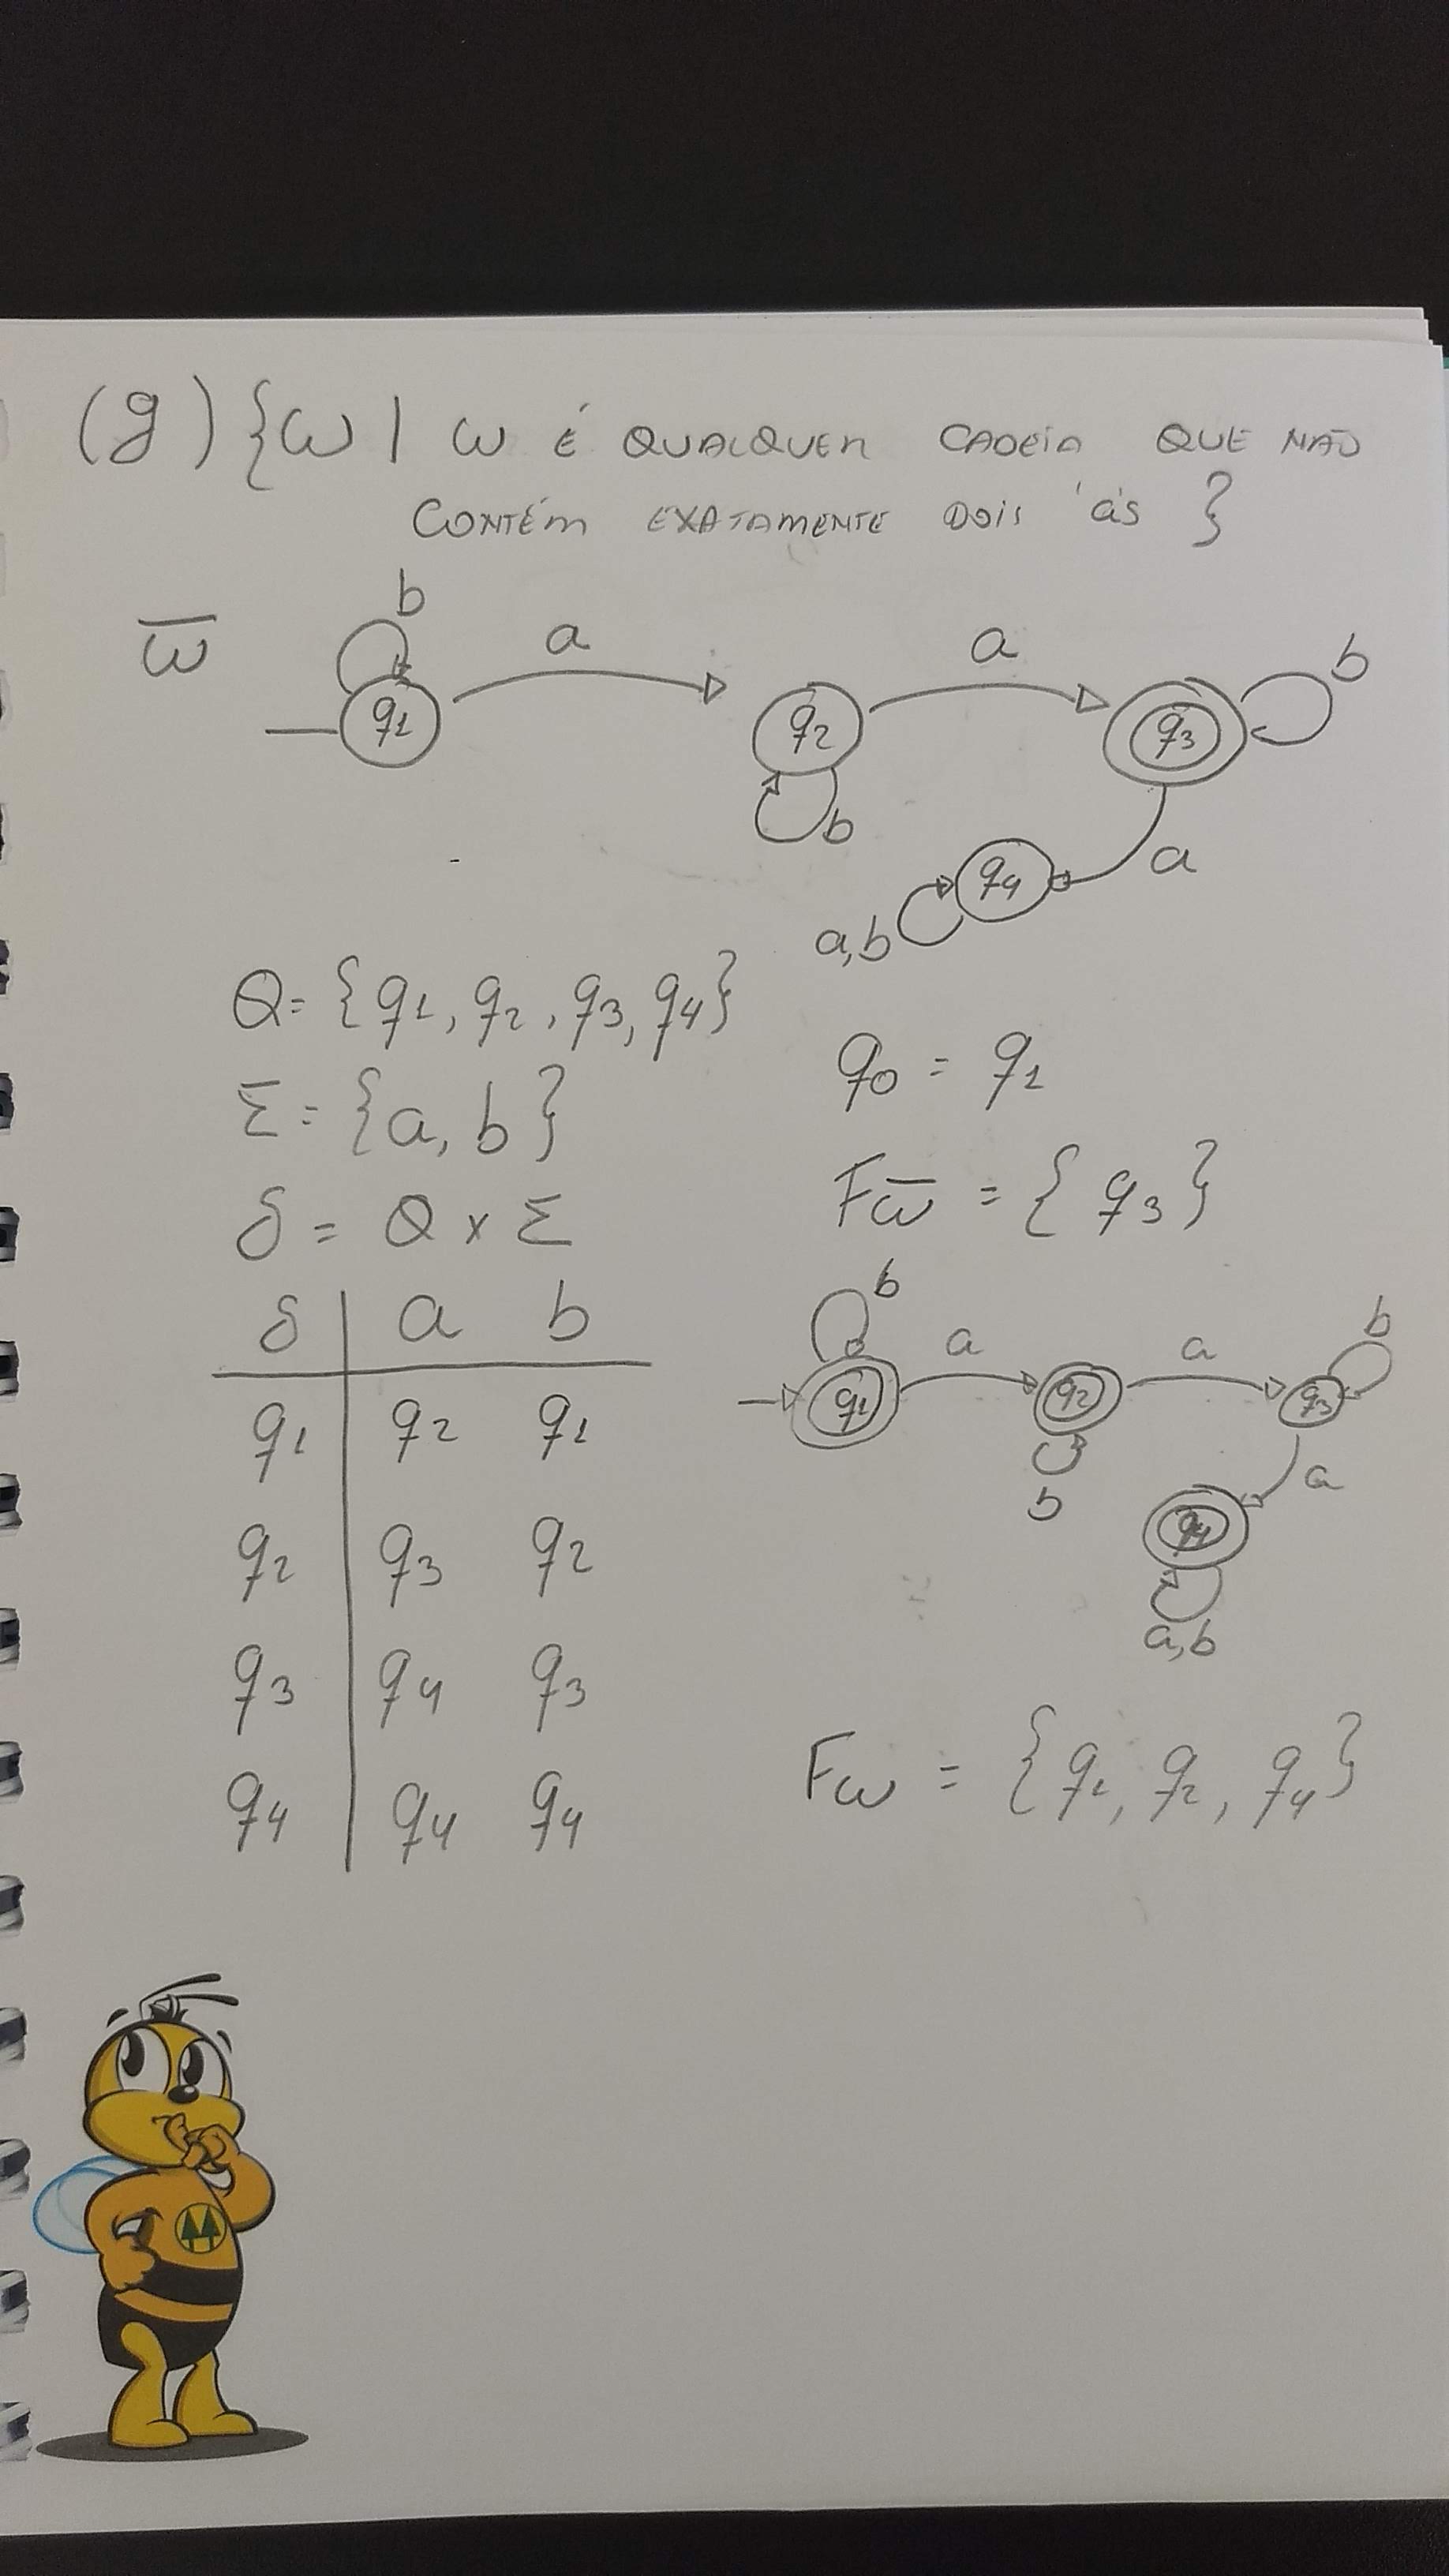 (g) {ω | ω É QUALQUER CADEIA QUE NÃO
CONTÉM EXATAMENTE DOIS 'a's }
ω̅
b
a
a
b
q1
q2
q3
b
a
q4
a,b
Q = {q1, q2, q3, q4}
q0 = q1
Σ = {a, b}
Fω̅ = { q3 }
δ = Q x Σ
δ | a b
q1 | q2 q1
q2 | q3 q2
q3 | q4 q3
q4 | q4 q4
b
a
a
b
q1
q2
q3
b
a
q4
a,b
Fω = {q1, q2, q4}